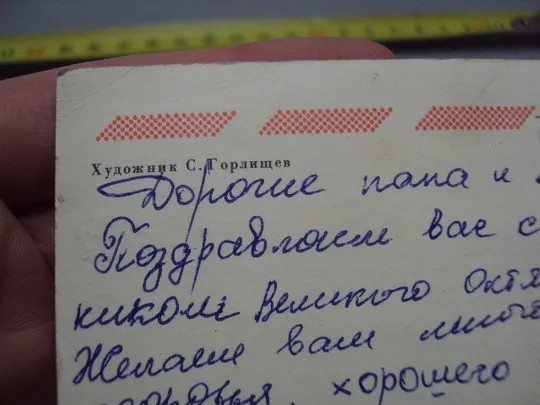 Художник С. Горлищев
Дорогие папа и
Поздравляем вас с
ником Великого Октя
Желаем вам много
здоровья, хорошего